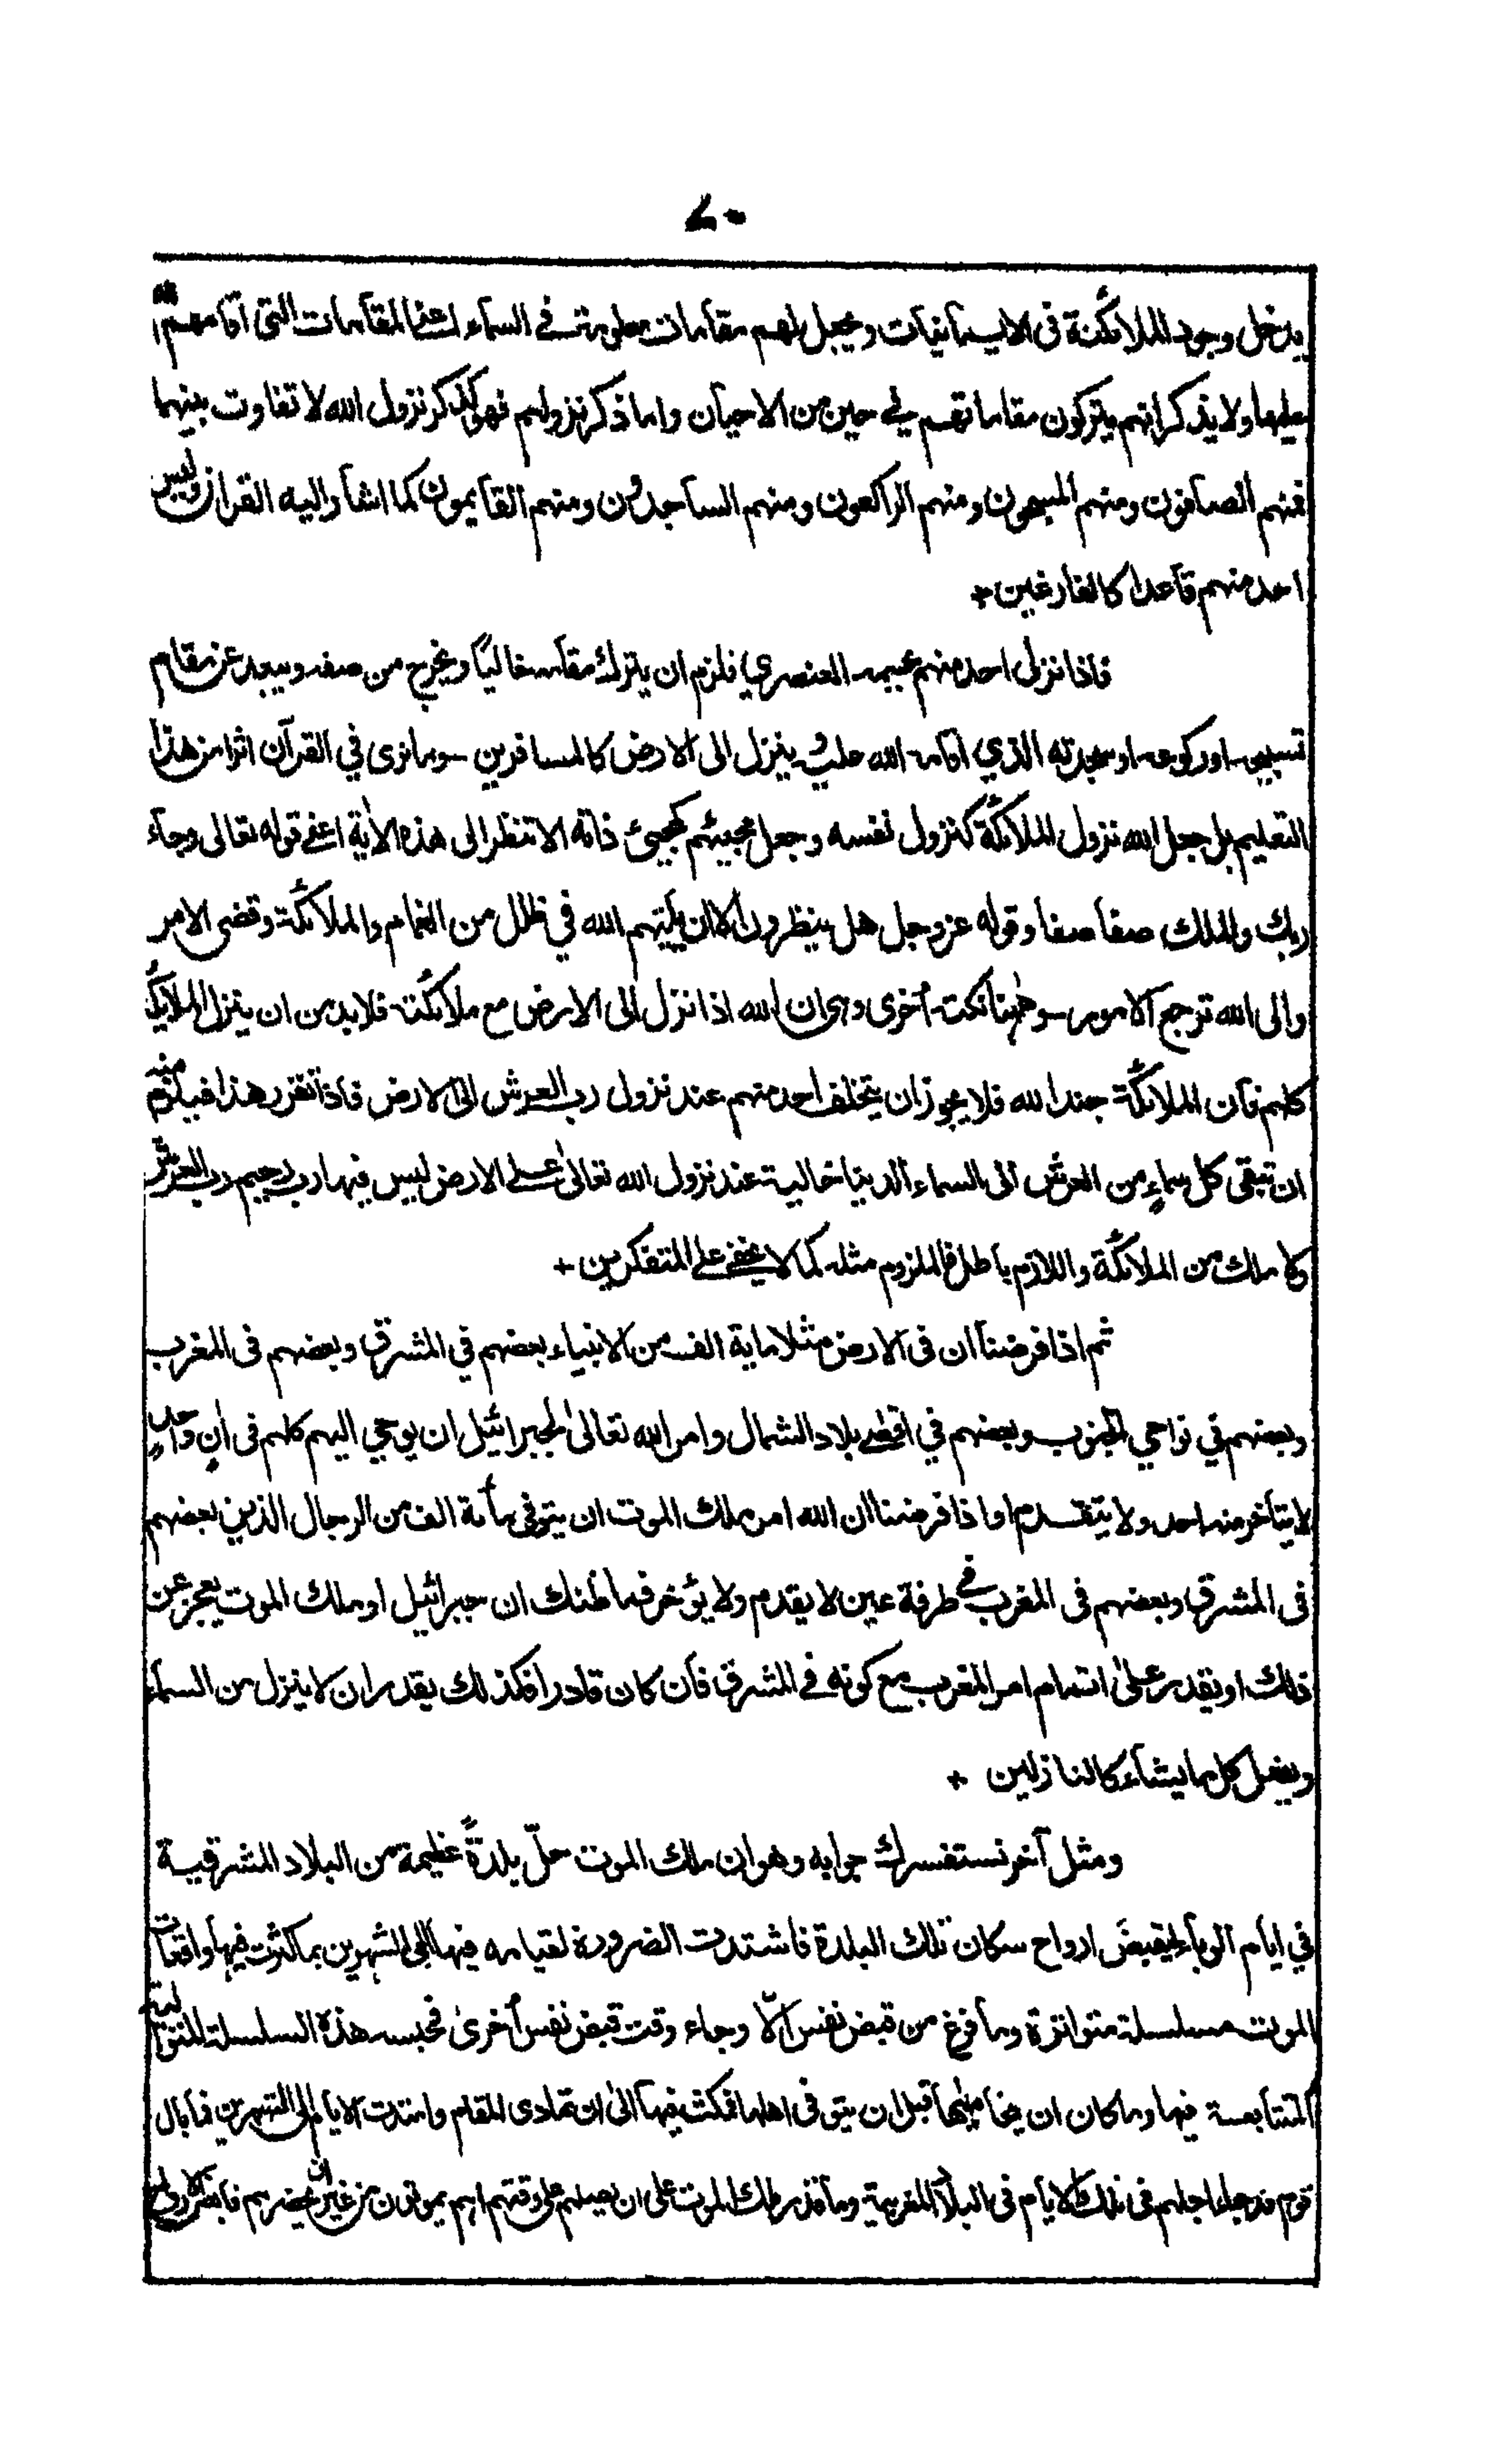 ٧٠
يدخل وجود الملائكة فى الايمانيات ويجعل لهم مقامات معلومة فى السماء اعنى المقامات التى اقامهم الله
عليها ولا يذكر انهم يتركون مقاماتهم فى حين من الاحيان واما ذكر نزولهم فهو كذكر نزول الله لا تفاوت بينهما
فمنهم الصافون ومنهم المسبحون ومنهم الراكعون ومنهم الساجدون ومنهم القايمون كما اشار اليه القرآن وليس
احد منهم قاعدا كالفارغين +
فاذا نزل احد منهم بجسمه العنصري فلزم ان يترك مقامه خاليًا ويخرج من صفه ويبعد عن مقام
تسبيحه او ركوعه او سجدته الذي اقامه الله عليه وينزل الى الارض كالمسافرين ـ وما نرى في القرآن اثرا من هذا
التعليم بل جعل الله نزول الملائكة كنزول نفسه وجعل مجيئهم كمجيئ ذاته الا تنظر الى هذه الأية اعنى قوله تعالى وجاء
ربك والملك صفا صفا وقوله عزوجل هل ينظرون الا ان يأتيهم الله في ظلل من الغمام والملائكة وقضى الامر
والى الله ترجع الامور ـ وههنا نكتة أخرى وهى ان الله اذا نزل الى الارض مع ملائكته فلا بد من ان ينزل الملايكة
كلهم فان الملائكة جند الله فلا يجوز ان يتخلف احد منهم عند نزول رب العرش الى الارض فاذا تقرر هذا فيلزم منه
ان تبقى كل سماءٍ من العرش الى السماء الدنيا خالية عند نزول الله تعالى على الارض ليس فيها رب رحيم رب العرش
ولا ملك من الملائكة واللازم باطل فالملزوم مثله كما لا يخفى على المتفكرين +
ثم اذا فرضنا ان فى الارض مثلا ماية الف من الانبياء بعضهم في المشرق وبعضهم فى المغرب
وبعضهم في نواحي الجنوب وبعضهم في اقصى بلاد الشمال وامر الله تعالىٰ لجبرائيل ان يوحي اليهم كلهم فى اٰنٍ واحدٍ
لا يتأخر منه احد ولا يتقدم او اذا فرضنا ان الله امر ملك الموت ان يتوفى مأة الف من الرجال الذين بعضهم
فى المشرق وبعضهم فى المغرب فى طرفة عين لا يقدم ولا يؤخر فما ظنك ان جبرائيل او ملك الموت يعجز عن
ذلك او يقدر علىٰ اتمام امر المغرب مع كونه فى المشرق فان كان قادرا فكذلك يقدر ان لا ينزل من السماء
ويفعل كل ما يشاء كالنازلين +
ومثل آخر نستفسرك جوابه وهو ان ملك الموت حلّ بلدةً عظيمة من البلاد المشرقية
في ايام الوباء ليقبضَ ارواح سكان تلك البلدة فاشتدت الضرورة لقيامه فيها الى الشهرين بما كثرت فيها واقعات
الموت مسلسلة متواترة وما فرغ من قبض نفس الّا وجاء وقت قبض نفس أخرىٰ فحبسه هذه السلسلة المتوالية
المتتابعة فيها وما كان ان يخامينها قبل ان يتوفى اهلها فمكث فيها الىٰ ان تمادى المقام وامتدت الايام الى الشهرين فما بال
قوم قد جاء اجلهم فى تلك الايام فى البلاد المغربية وما قدر ملك الموت على ان يصيلهم على وقتهم ايهم يموتون من غير ان يحضرهم قابض الارواح